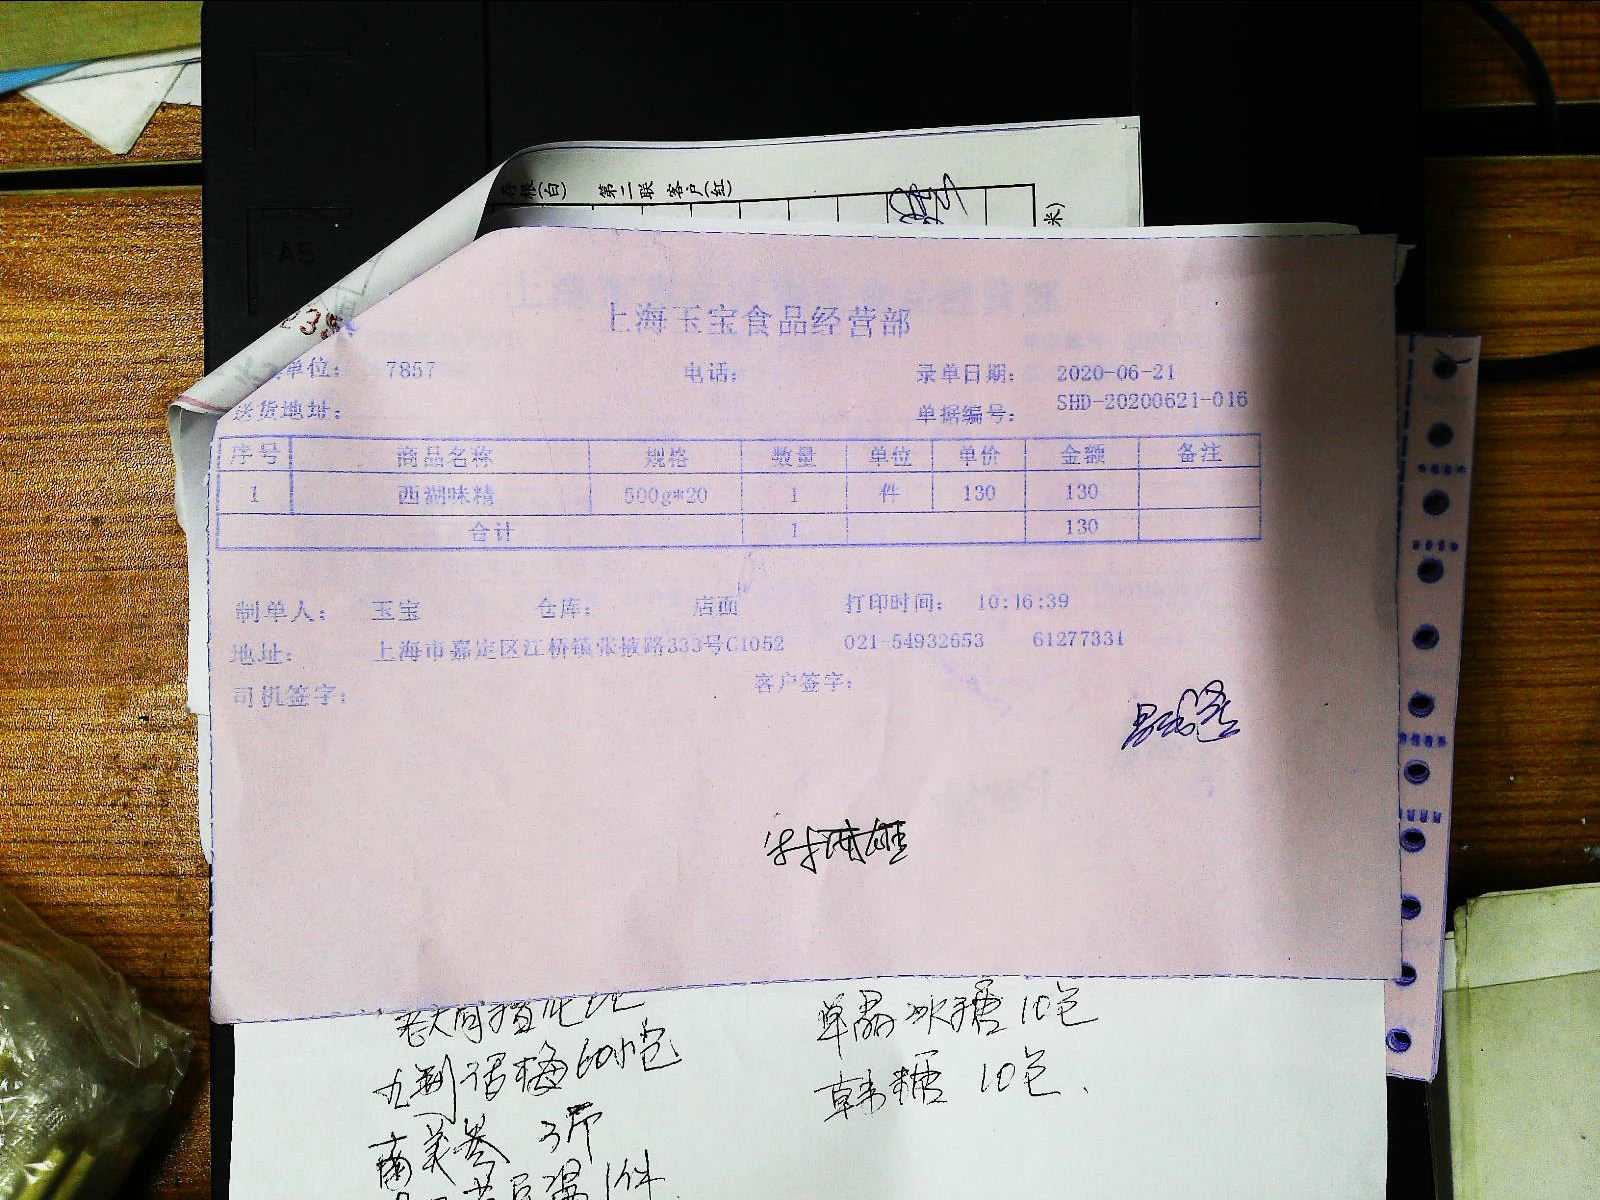 A5
存根(白) 第二联 客户(红)
米)
上海玉宝食品经营部
单位: 7857 电话: 录单日期: 2020-06-21
送货地址: 单据编号: SHD-20200621-016
序号 商品名称 规格 数量 单位 单价 金额 备注
1 西湖味精 500g*20 1 件 130 130
合计 1 130
制单人: 玉宝 仓库: 店面 打印时间: 10:16:39
地址: 上海市嘉定区江桥镇张掖路333号C1052 021-54932653 61277331
司机签字: 客户签字:
单晶冰糖 10包
九制话梅 60小包
韩糖 10包.
南美参 3斤
1件